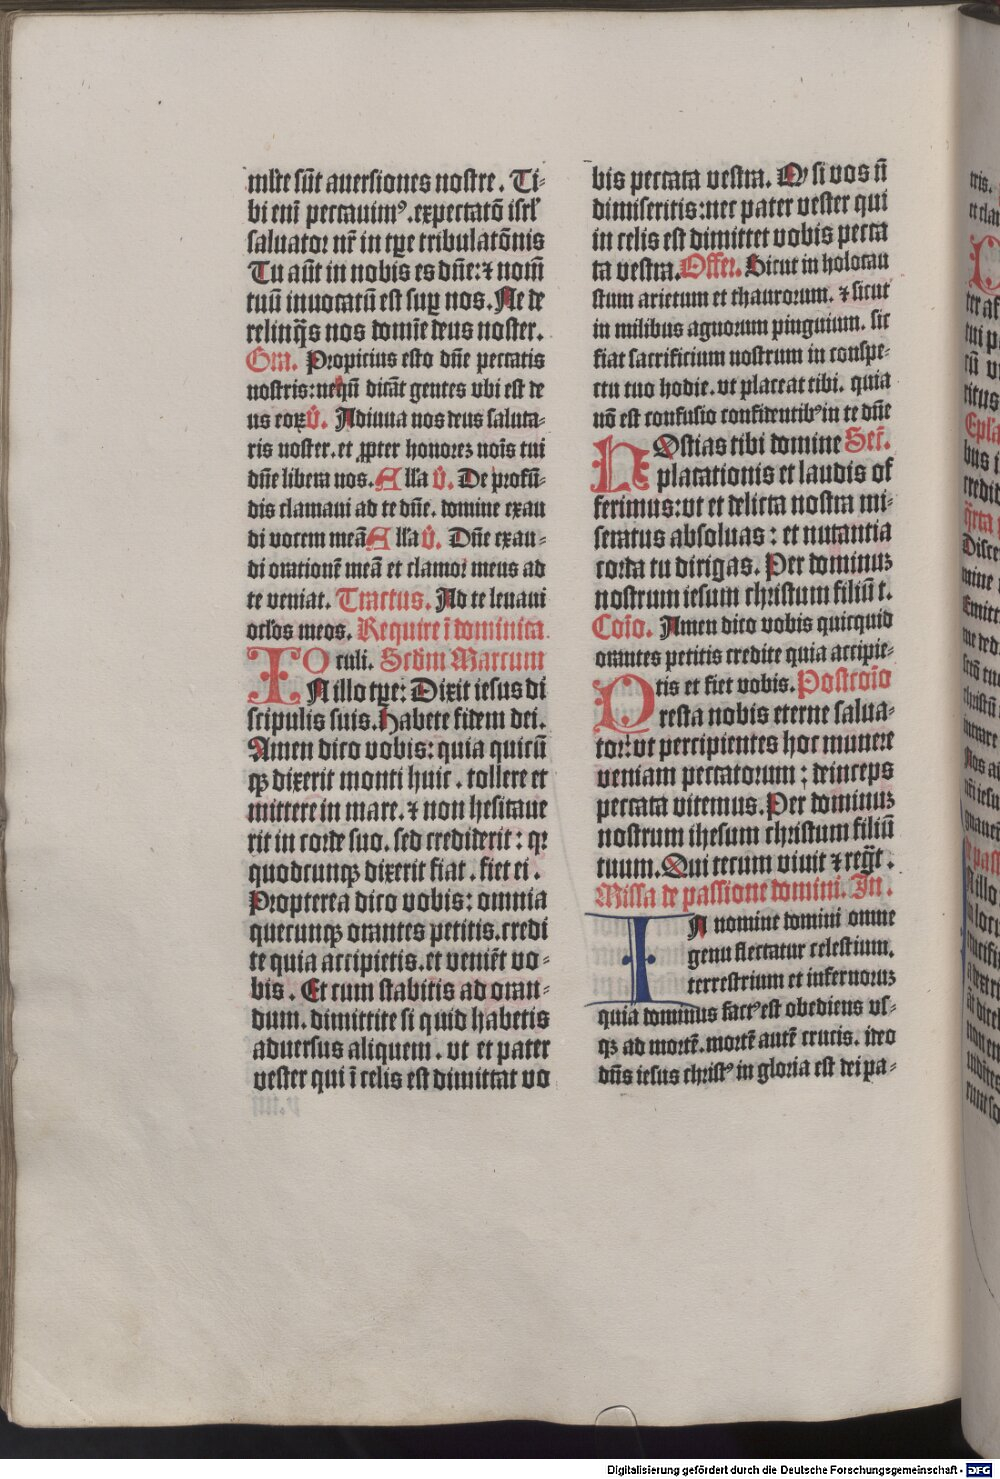 mlte sūt auersiones nostre. Ti-
bi eni peccauimꝰ. expectatō isrl'
saluator nr̄ in tpe tribulatōnis
Tu aūt in nobis es dn̄e: ⁊ nom̄
tuū inuocatū est sup nos. Ne de
relinq̄s nos domīe deus noster.
Gra. Propicius esto dn̄e peccatis
nostris: neqn̄ dicāt gentes vbi est de
us eoꝝ V̄. Adiuua nos deus saluta-
ris noster. et ꝓpter honorez nois tui
dn̄e libera nos. Alla V̄. De profū-
dis clamaui ad te dn̄e. domine exau
di vocem meā Alla V̄. Dn̄e exau-
di orationē meā et clamor meus ad
te veniat. Tractus. Ad te leuaui
oclōs meos. Require ī dominica
Oculi. Scdm Marcum
IN illo tpe: Dixit iesus di
scipulis suis. Habete fidem dei.
Amen dico vobis: quia quicū
qꝫ dixerit monti huic. tollere et
mittere in mare. ⁊ non hesitaue
rit in corde suo. sed crediderit: qꝛ
quodcunqꝫ dixerit fiat. fiet ei.
Propterea dico vobis: omnia
quecunqꝫ orantes petitis. credi
te quia accipietis. et veniēt vo-
bis. Et cum stabitis ad oran-
dum. dimittite si quid habetis
aduersus aliquem. vt et pater
vester qui ī celis est dimittat vo
bis peccata vestra. Qꝛ si vos n̄
dimiseritis: nec pater vester qui
in celis est dimittet vobis pecca
ta vestra. Offer. Sicut in holocau
stum arietum et thaurorum. ⁊ sicut
in milibus agnorum pinguium. sic
fiat sacrificium nostrum in conspe-
ctu tuo hodie. vt placeat tibi. quia
nō est confusio confidentibꝰ in te dn̄e
HOstias tibi domine Secr̄.
placationis et laudis of
ferimus: vt et delicta nostra mi-
seratus absoluas: et nutantia
corda tu dirigas. Per dominuz
nostrum iesum christum filiū t.
Coīo. Amen dico vobis quicquid
orantes petitis credite quia accipie-
tis et fiet vobis. Postcoīo
Presta nobis eterne salua-
tor: vt percipientes hoc munere
veniam peccatorum: deinceps
peccata vitemus. Per dominuz
nostrum ihesum christum filiū
tuum. Qui tecum viuit ⁊ regt̄.
Missa de passione domini. In.
IN nomine domini omne
genu flectatur celestium.
terrestrium et infernoruz
quia dominus factꝰ est obediens vs-
qꝫ ad mortē. mortē autē crucis. ideo
dn̄s iesus christꝰ in gloria est dei pa-
Digitalisierung gefördert durch die Deutsche Forschungsgemeinschaft - DFG